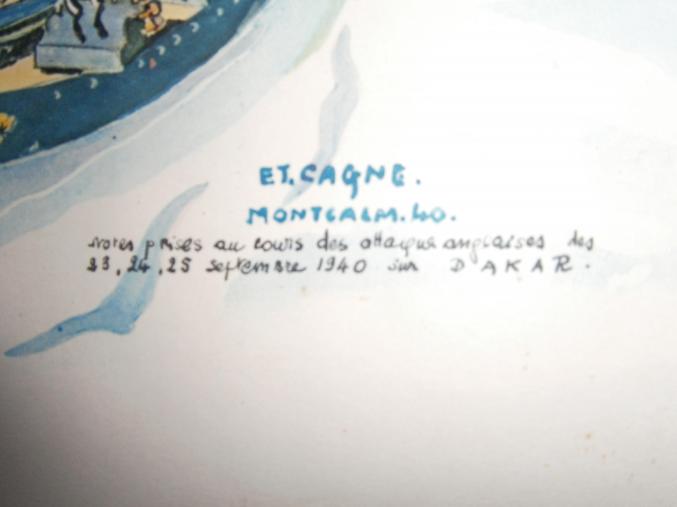 ET. CAGNE.
MONTCALM. 40.
Notes prises au cours des attaques anglaises des
23, 24, 25 septembre 1940 sur DAKAR.